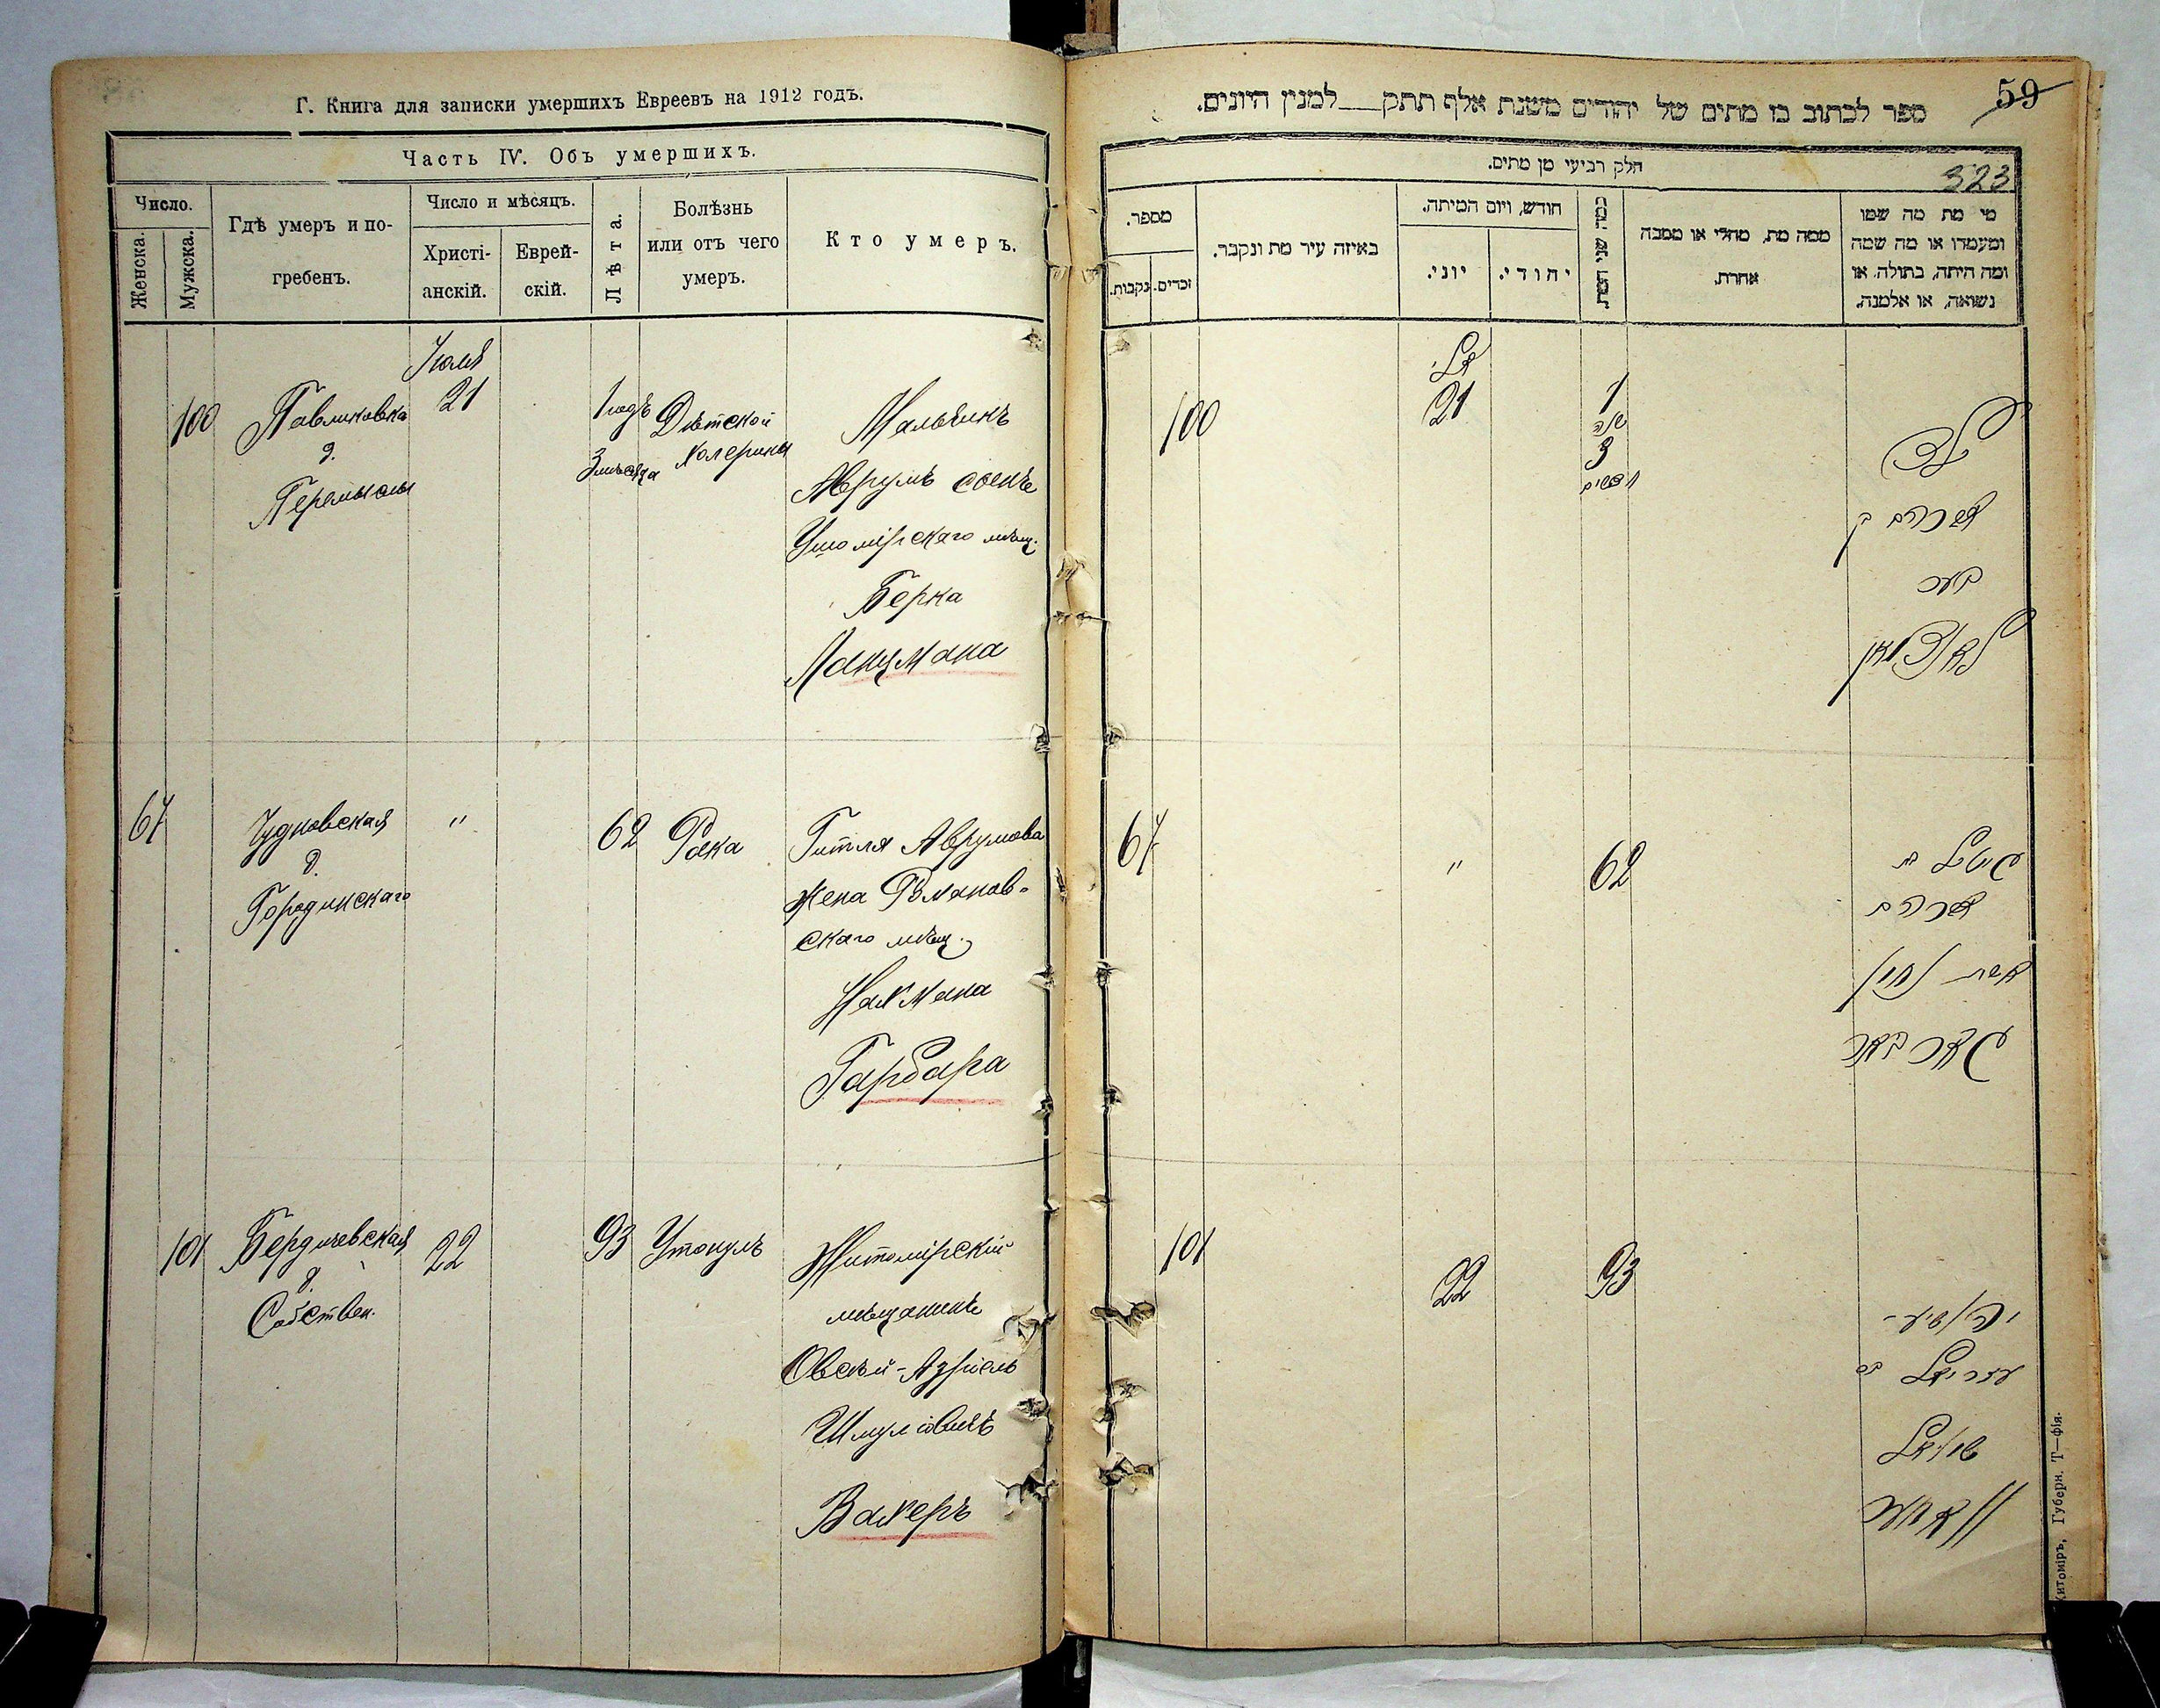 Г. Книга для записки умершихъ Евреевъ на 1912 годъ.
Часть IV. Объ умершихъ.
Число.
Женска.
Мужска.
Гдѣ умеръ и по-
гребенъ.
Число и мѣсяцъ.
Христі-
анскій.
Еврей-
скій.
Лѣта.
Болѣзнь
или отъ чего
умеръ.
Кто умеръ.
100
Павликовка
д.
Іюля
21
1 годъ
3 мѣсяца
Дѣтской
холерины
Мальчикъ
Аврумъ сынъ
Ушомірскаго мѣщ.
Берка
Ланцмана
67
Чудновская
д.
Городинскаго
"
62
Рака
Гитля Аврумова
жена Романов-
скаго мѣщ.
Нахмана
Гарбара
101
Бердичевская
д.
Собствен.
22
93
Утонулъ
Житомірскій
мѣщанинъ
Овсей-Азріель
Шмулевичъ
Вахеръ
59
ספר לכתוב בו מתים של יהודים משנת אלף תתק למנין היונים.
323
חלק רביעי מן מתים.
מספר.
נקבות.
זכרים.
באיזה עיר מת ונקבר.
חודש, ויום המיתה.
יוני.
יהודי.
כמה שני המת.
ממה מת, מחלי או ממכה
אחרת.
מי מת מה שמו
ומעמדו או מה שמה
ומה היתה, בתולה, או
נשואה, או אלמנה.
100
21
1
שנה
3
חדשים
ילד
אברהם בן
בער
לאנצמאן
67
"
62
גיטל בת
אברהם
אשת נחמן
גארבאר
101
22
93
יהושע-
עזריאל בן
שמואל
וואחער
Житоміръ, Губерн. Т—фія.